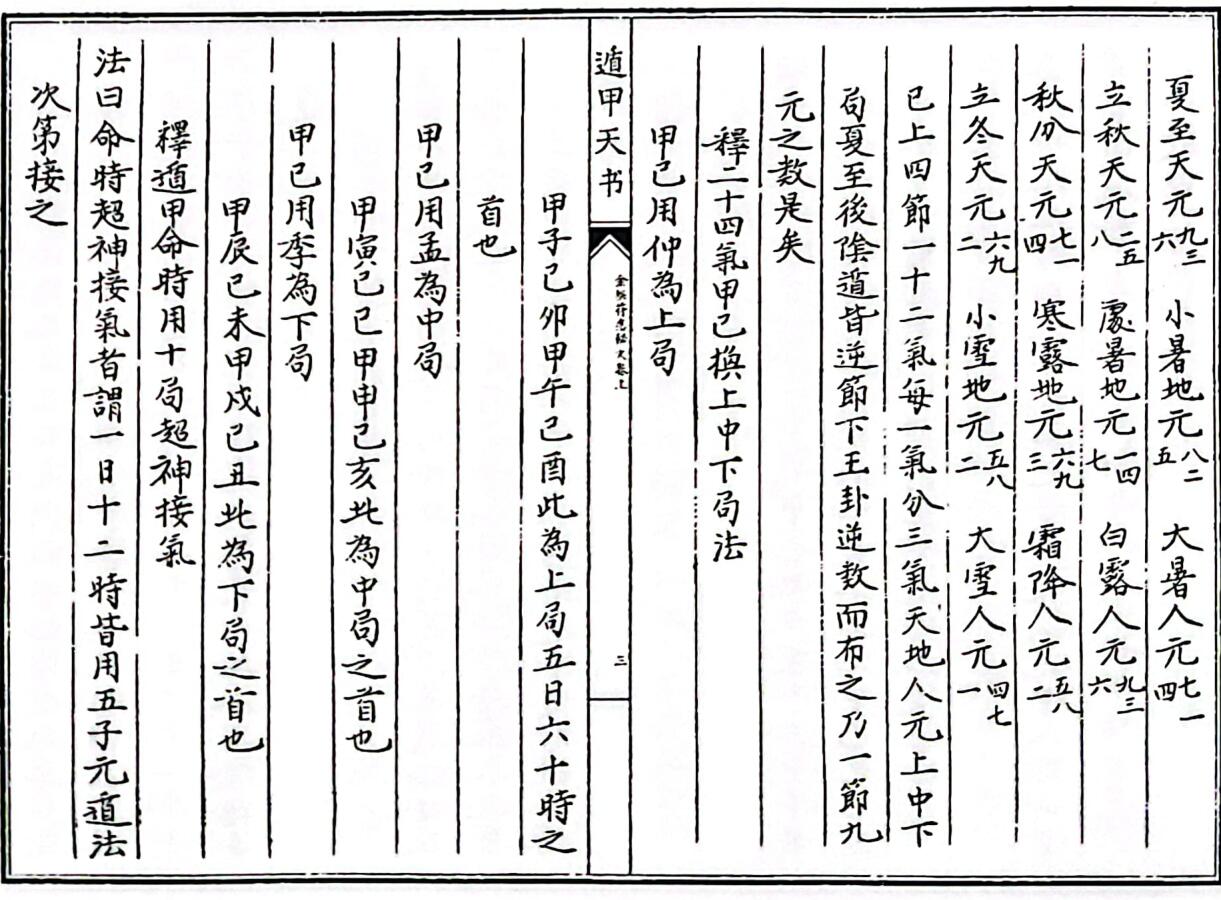 夏至天元九三六　小暑地元八二五　大暑人元七一四
立秋天元二五八　處暑地元一四七　白露人元九三六
秋分天元七一四　寒露地元六九三　霜降人元五八二
立冬天元六九二　小雪地元五八二　大雪人元四七一
已上四節一十二氣每一氣分三氣天地人元上中下
局夏至後陰遁皆逆節下王卦逆数而布之乃一節九
元之数是矣
釋二十四氣甲己換上中下局法
甲己用仲為上局
遁甲天书
三
甲子己卯甲午己酉此為上局五日六十時之
首也
甲己用孟為中局
甲寅己巳甲申己亥此為中局之首也
甲己用季為下局
甲辰己未甲戍己丑此為下局之首也
釋遁甲命時用十局超神接氣
法曰命時超神接氣者謂一日十二時皆用五子元遁法
次第接之